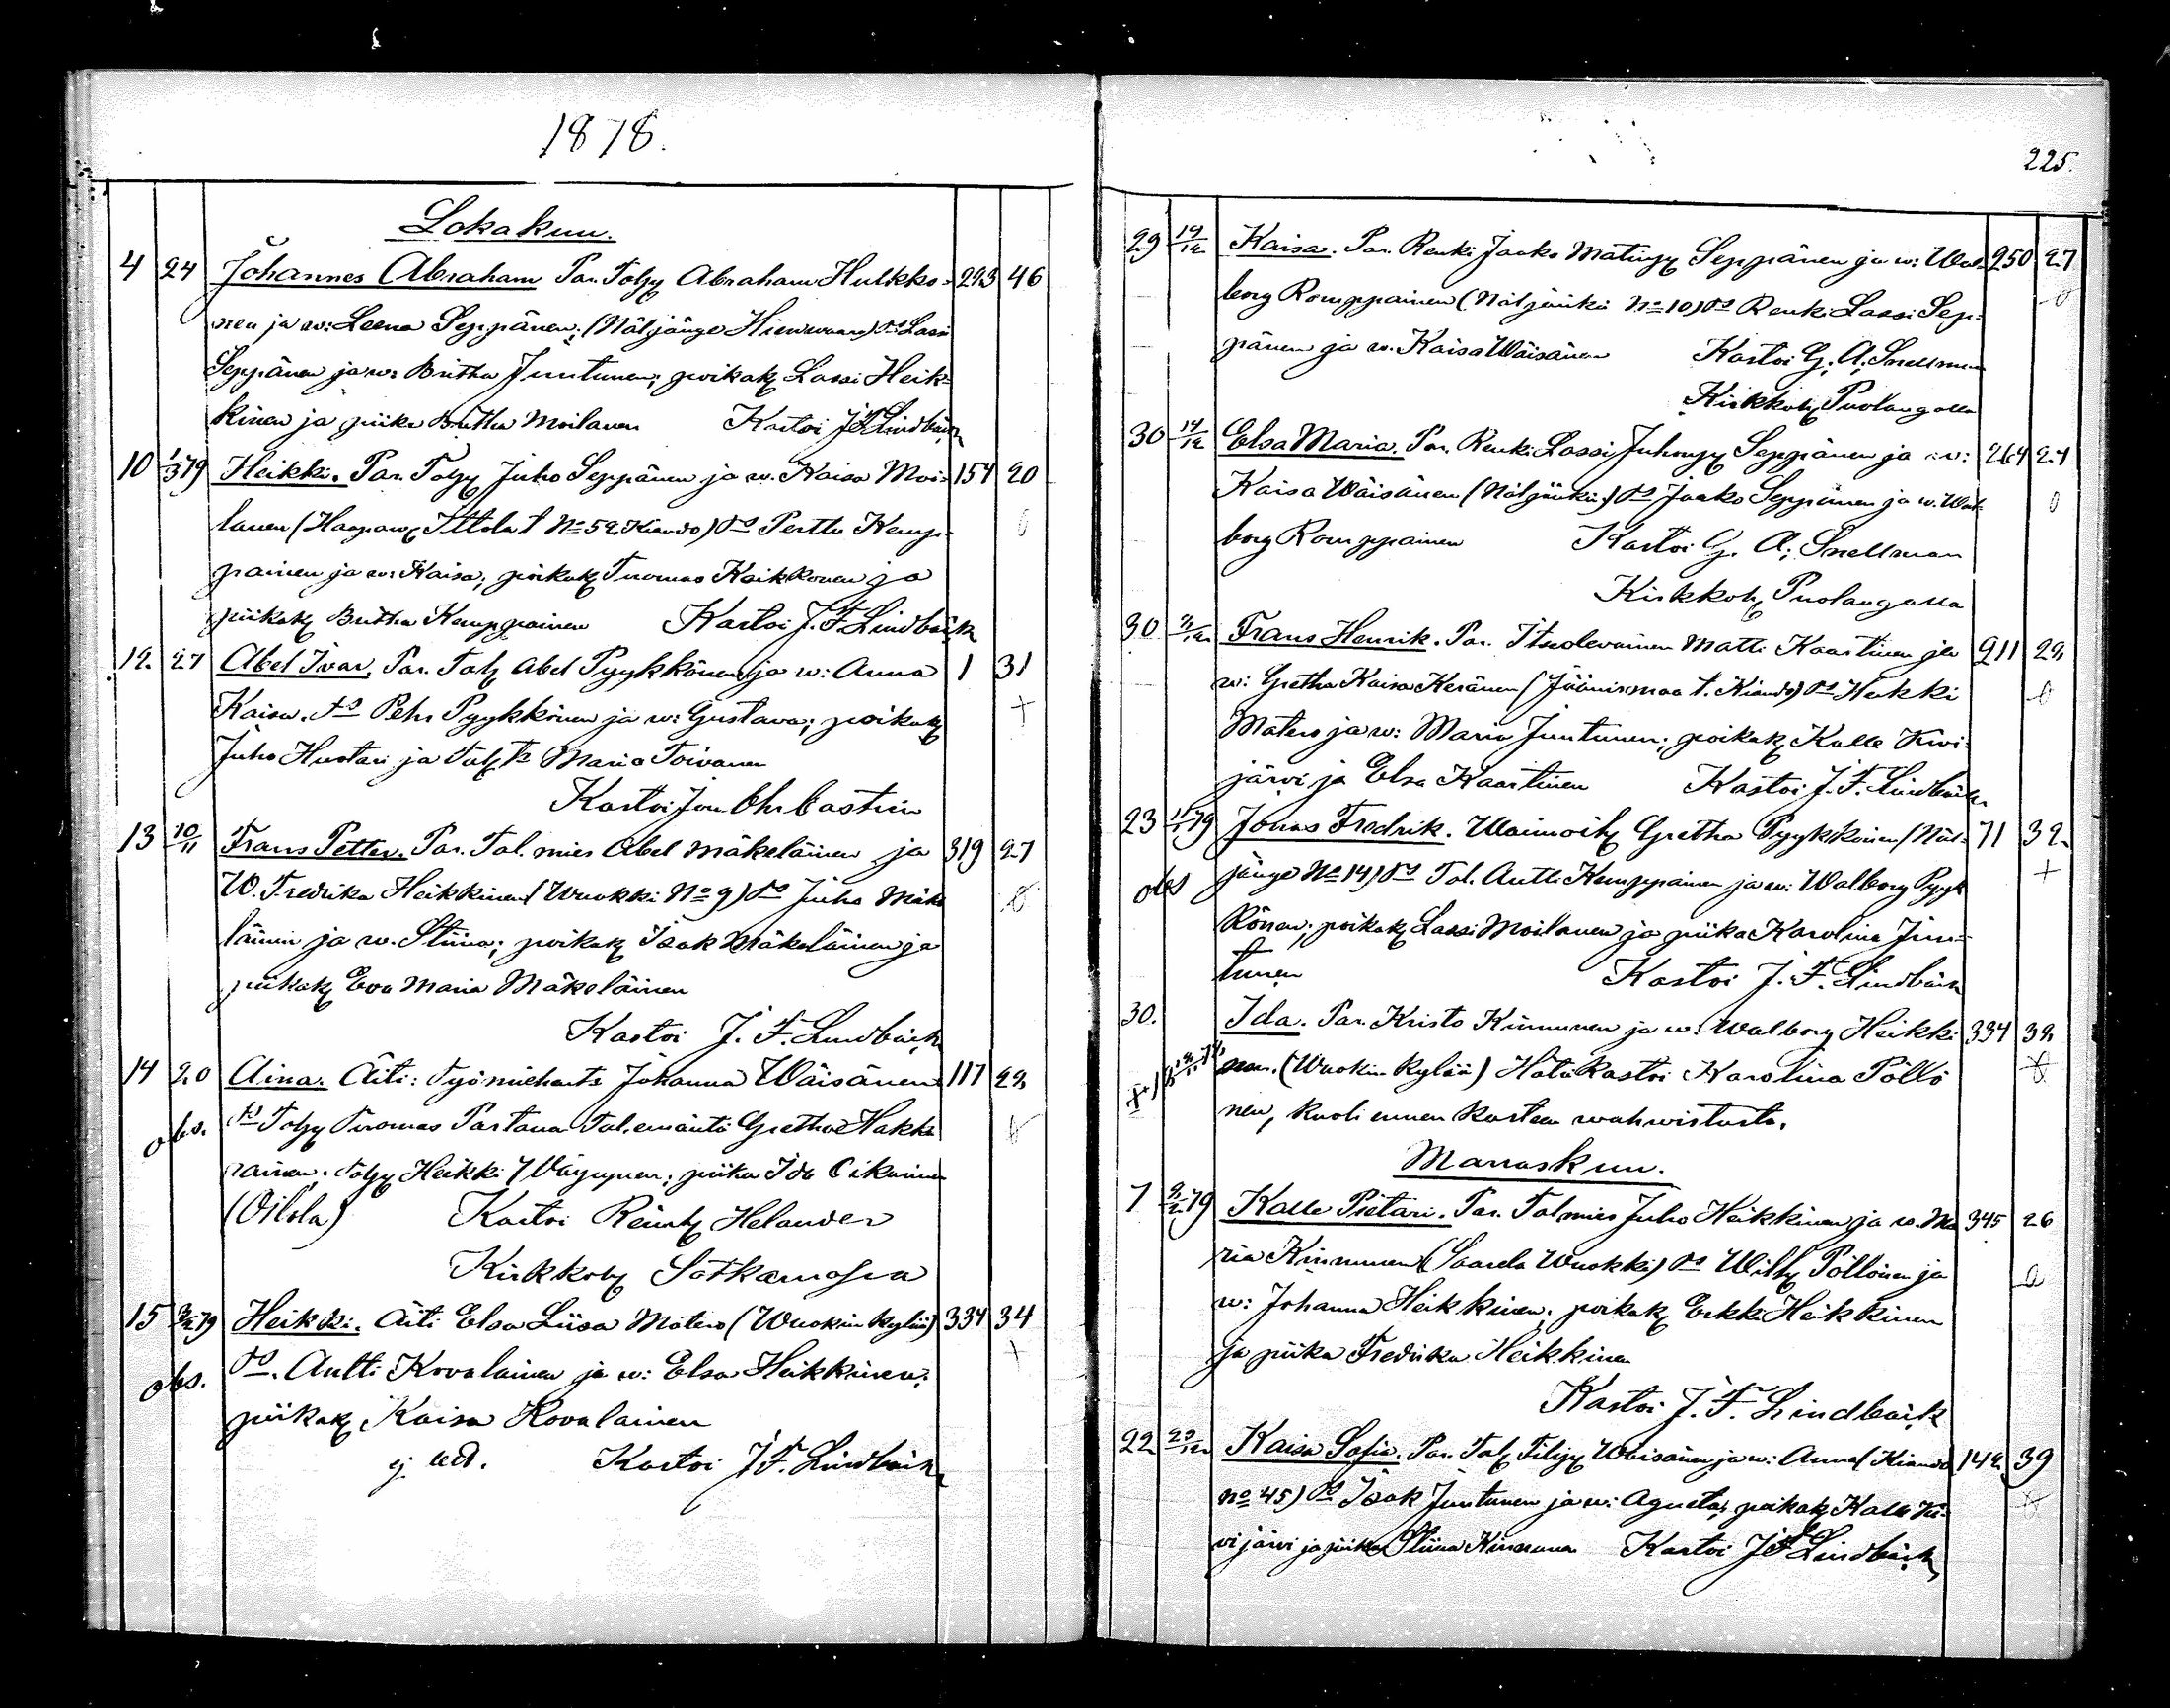 1878.
Lokakuu.
4 24 Johannes Abraham Par. Talpj Abraham Hulkko- 293 46
nen ja w: Leena Seppänen; (Näljänge Hienwaara) Ts Lassi
Seppänen ja w: Britha Juntunen; poikak Lassi Heik-
kinen ja piika Britha Moilanen Kastoi J.F. Lindbäck
10 1/3 79 Heikki. Par. Talpj Juho Seppänen ja w. Kaisa Moi- 154 20
lanen (Haapaw No 52 Kiando) Ts Perttu Kemp-
painen ja w: Kaisa; poikak Tuomas Kaikkonen ja
piikak Britha Kemppainen Kastoi J. F. Lindbäck
12. 27 Abel Ivar. Par. Tal Abel Pyykkönen ja w: Anna 1 31
Kaisa. Ts Pehr Pyykkönen ja w: Gustava; poikak
Juho Huotari ja Tal. Ts Maria Toivanen
Kastoi Joh. Chr. Castrén
13 10/11 Frans Petter. Par. Tal. mies Abel Mäkeläinen ja 319 27
W. Fredrika Heikkinen (Wuokki No 9) Ts Juho Mäke
läinen ja w. Stiina; poikak Isak Mäkeläinen ja
piikak Eva Maria Mäkeläinen
Kastoi J. F. Lindbäck
14 20 Aina. Äiti: Työmiehents Johanna Wäisänen 117 22
obs. Ts Talpj Tuomas Partanen Tal. emäntä Gretha Hakka
rainen; Talpj Heikki Wäyrynen; piika Ida Oikarinen
(Oilola) Kastoi Reinh Helander
Kirkkoh Sotkamossa
15 79 Heikki. Äiti Elsa Liisa Matero (Wuokin kylää) 334 34
obs. Ts. Antti Kovalainen ja w: Elsa Heikkinen;
piikak Kaisa Kovalainen
ej utd. Kastoi J.F. Lindbäck
225.
29 14/12 Kaisa. Par. Renki Jaako Matinpj Seppänen ja w: Wal- 250 27
borg Romppainen (Näljänkä No 10) Ts Renki Lassi Sep-
pänen ja w. Kaisa Wäisänen Kastoi G. A. Snellman
Kirkkoh Puolangalla
30 14/12 Elsa Maria. Par. Renki Lassi Juhonpj Seppänen ja w: 264 24
Kaisa Wäisänen (Näljänkä) Ts Jaako Seppänen ja w. Wal-
borg Romppainen Kastoi G. A. Snellman
Kirkkoh Puolangalla
30 Frans Henrik. Par. Itsolewainen Matti Kaartinen ja 211 29
w: Gretha Kaisa Keränen (Jäänismaa t. Kiando) Ts Heikki
Matero ja w: Maria Juntunen; poikak Kalle Kivi-
järvi ja Elsa Kaartinen Kastoi J. F. Lindbäck
23 79 Jonas Fredrik. Waimoih Gretha Pyykkönen (Näl- 71 32
obs jänge No 14) Ts Tal. Antti Kemppainen ja w: Walborg Pyyk
könen; poikak Lassi Moilanen ja piika Karolina Jun-
tunen Kastoi J. F. Lindbäck
30. Ida. Par. Kristo Kinnunen ja w: Walborg Heikki 334 39
nen. (Wuokin kylää) Hätä kastoi Karolina Pöllö
nen, kuoli ennen kasteen wahwistusta.
Marraskuu.
7 79 Kalle Pietari. Par. Tal mies Juho Heikkinen ja w. Ma 345 26
ria Kinnunen (Saarela Wuokki) Ts Wilh Pöllönen ja
w: Johanna Heikkinen; poikak Erkki Heikkinen
ja piika Fredrika Heikkinen
Kastoi J. F. Lindbäck
22 29/12 Kaisa Sofia. Par. Tal Filip Wäisänen ja w: Anna (Kiando 142 39
no 45) Ts Isak Juntunen ja w: Agusta; poikak Kalle Ki-
vijärvi ja piika Stiina Kinnunen Kastoi J F Lindbäck